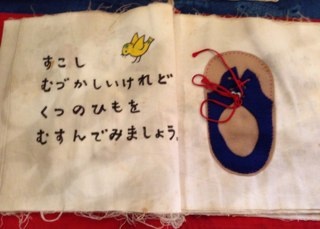 すこし
むづかしいけれど
くつのひもを
むすんでみましょう。